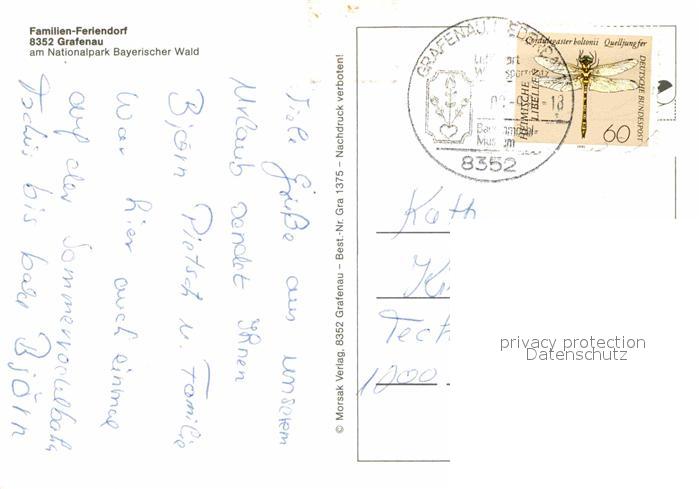 Familien-Feriendorf
8352 Grafenau
am Nationalpark Bayerischer Wald
Viele Grüße aus unserem
Urlaub sendet Ihnen
Björn Pietsch u. Familie
War hier auch einmal
auf der Sommerrodelbahn
Tschüs bis bald Björn
© Morsak Verlag, 8352 Grafenau – Best.-Nr. Gra 1375 – Nachdruck verboten!
GRAFENAU
8352
Cordulegaster boltonii Quelljungfer
HEIMISCHE
LIBELLEN
DEUTSCHE BUNDESPOST
60
Kath
Ki
Tech
1000
privacy protection
Datenschutz